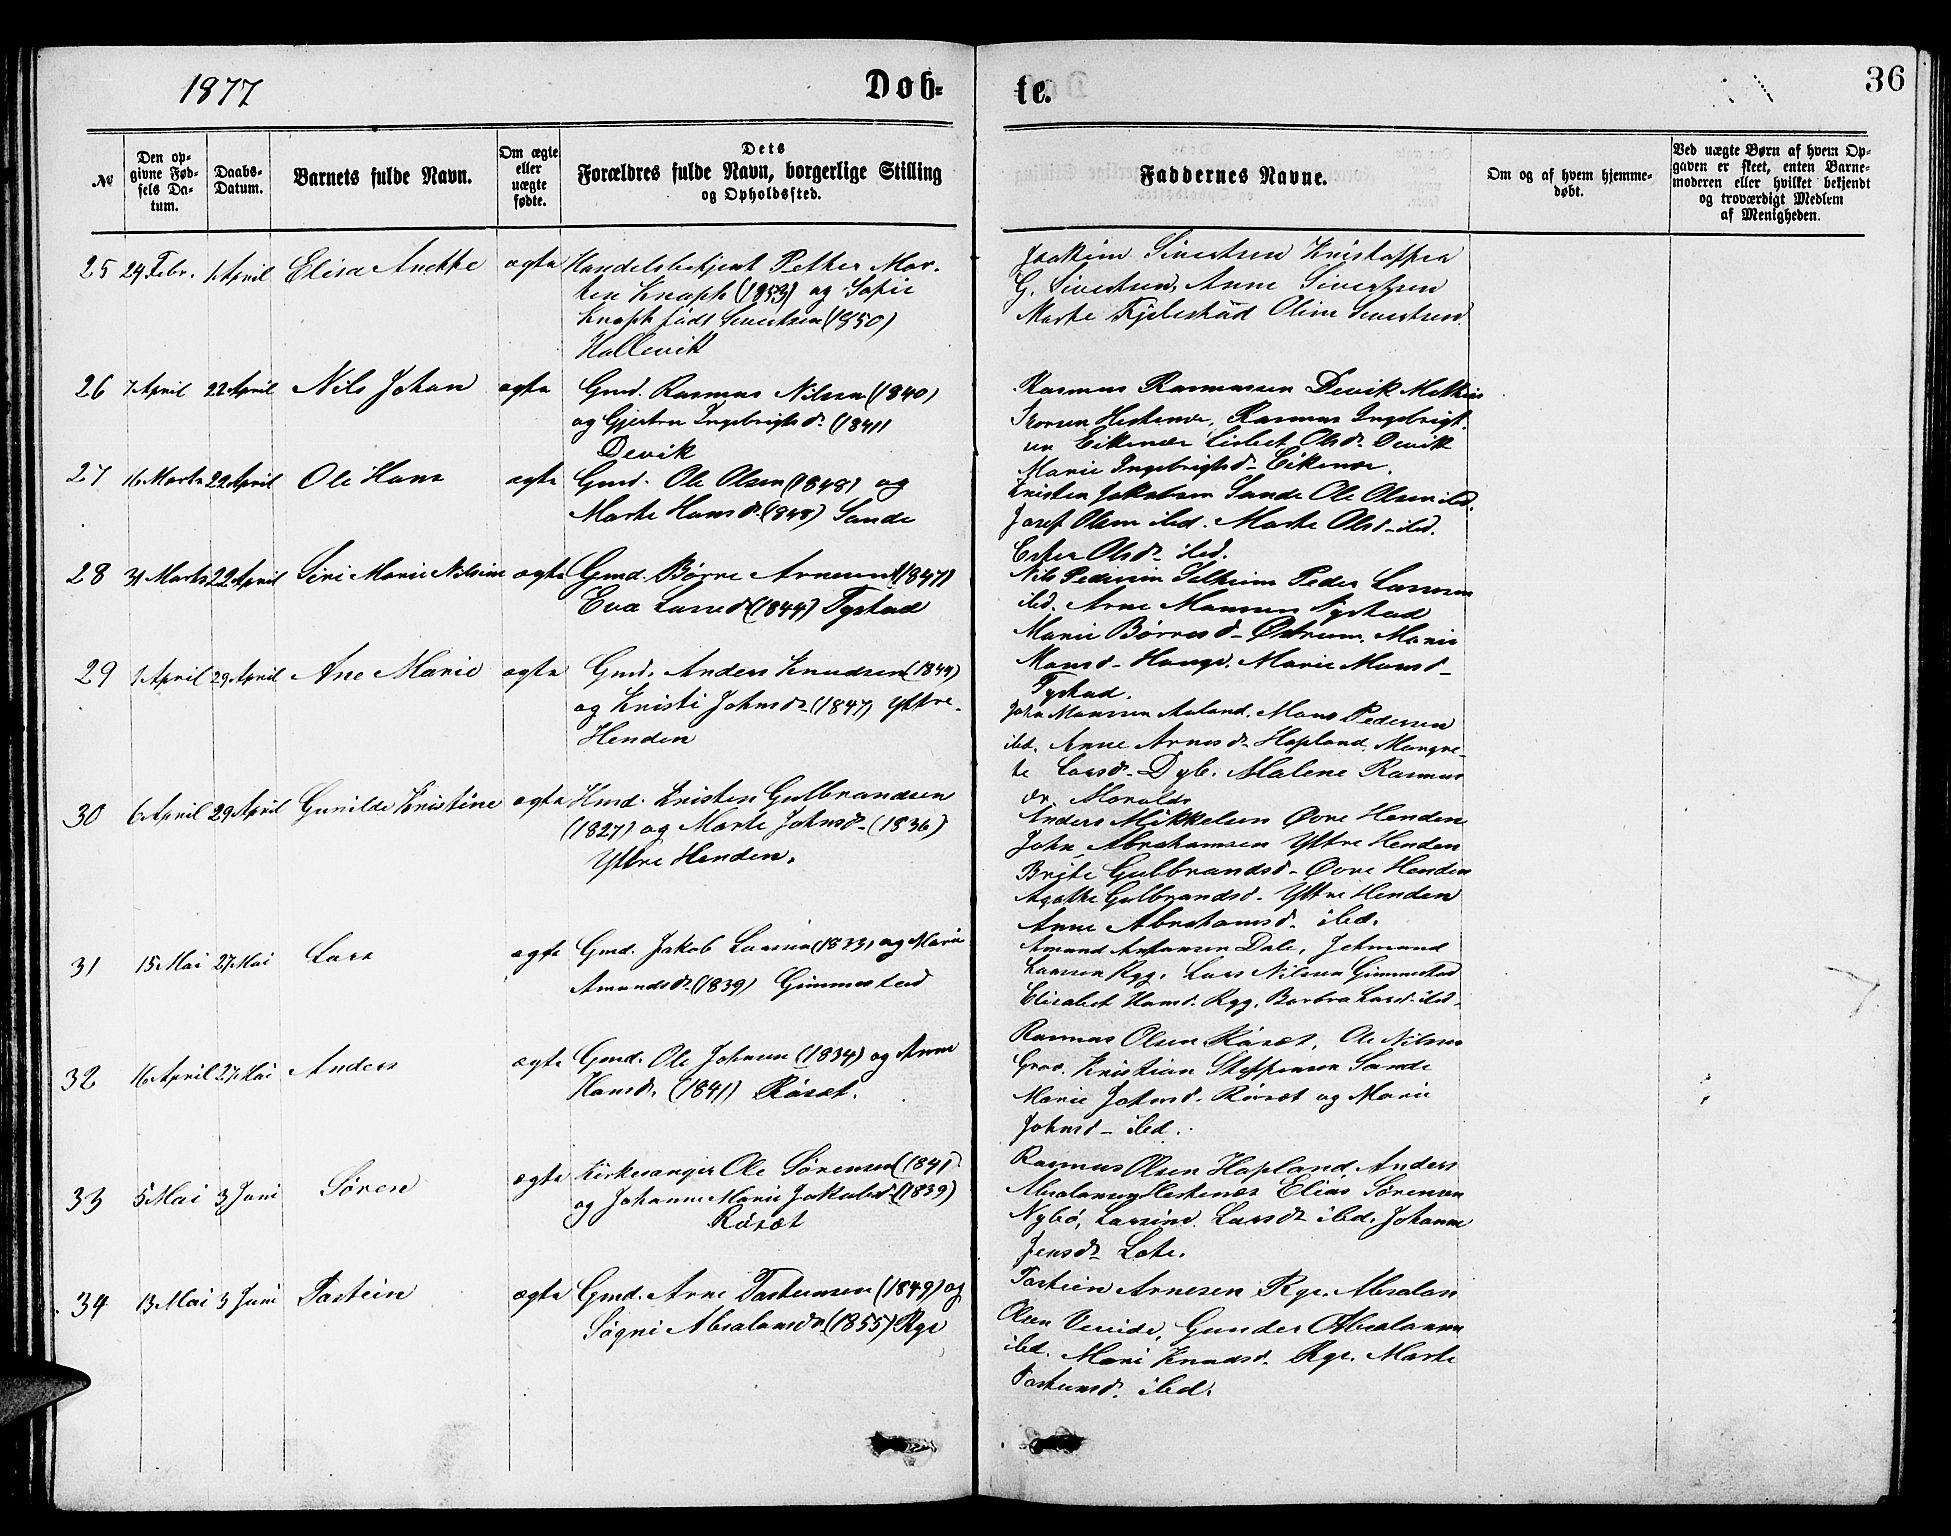 1877
Døb-
te.
36
№
Den op-
givne Fød-
sels Da-
tum.
Daabs-
Datum.
Barnets fulde Navn.
Om ægte
eller
uægte
fødte.
Dets
Forældres fulde Navn, borgerlige Stilling
og Opholdssted.
Faddernes Navne.
Om og af hvem hjemme-
døbt.
Ved uægte Børn af hvem Op-
gaven er skeet, enten Barne-
moderen eller hvilket bekjendt
og troværdigt Medlem
af Menigheden.
25 24 Febr. 1 April Elisa Anette ægte Handelsbetjent Petter Mor-
ten Knoph (1853) og Sofie
Knoph født Sivertsen (1850)
Hallevik
Joakim Sivertsen Kristoffer
G. Sivertsen, Anne Sivertsen
Marte Oline Sivertsen.
26 7 April 22 April Nils Johan ægte Gmd. Rasmus Nilsen (1840)
og Gjertru Ingebrigtsd. (1841)
Devik
Rasmus Rasmussen Devik Mathias
Iversen Hestenes, Rasmus Ingebrigt-
sen Eikenæs Lisbet Olsd. Devik
Marie Ingebrigtsd. Eikenæs.
27 16 Marts 22 April Ole Hans ægte Gmd. Ole Olsen (1848) og
Marte Hansd. (1848) Sande
Kristen Jakobsen Sande Ole Olsen ibd.
Josef Olsen ibd. Marte Olsd. ibd.
Ester Olsd. ibd.
28 31 Marts 22 April Siri Marie Nilsine ægte Gmd. Børre Arnesen (1847)
Eva Larsd. (1844) Tystad
Nils Pedersen Solheim Peder Larsen
ibd. Arne Monsen Tystad
Marie Børresd. Østrem. Marie
Monsd. Hauge. Marie Monsd.
Tystad.
29 1 April 29 April Ane Marie ægte Gmd. Anders Knudsen (1844)
og Kristi Johnsd. (1847) Yttre-
Henden
John Monsen Aaland. Mons Pedersen
ibd. Anne Arnesd. Hopland. Margre-
te Larsd. Dyb. Malene Rasmus
dr.
30 6 April 29 April Gunilde Kristine ægte Hmd. Kristen Gulbrandsen
(1827) og Marte Johnsd. (1836)
Yttre Henden.
Anders Mikkelsen Øvre Henden
John Abrahamsen Yttre Henden
Brite Gulbrandsd. Øvre Henden
Agathe Gulbrandsd. Yttre Henden
Anne Abrahamsd. ibd.
31 15 Mai 27 Mai Lars ægte Gmd. Jakob Larsen (1833) og Marie
Amundsd. (1839) Gimmestad
Amund Antonsen Dale, Jetmund
Larsen Ryg. Lars Nilsen Gimmestad
Elisabet Hansd. Ryg. Barbra Larsd. ibd.
32 16 April 27 Mai Anders ægte Gmd. Ole Johnsen (1834) og Anne
Hansd. (1841) Råset.
Rasmus Olsen Råset, Ole Nilsen
Grov. Kristian Steffensen Sande
Marie Johnsd. Råset og Marie
Johnsd. ibd.
33 5 Mai 3 Juni Søren ægte Kirkesanger Ole Sørensen (1841)
og Johanne Marie Jakobsd. (1839)
Råset
Rasmus Olsen Hopland, Anders
Absalonsen Hestenes Elias Sørensen
Nybø, Larsine Larsdr. ibd. Johanne
Jensdr. Lote.
34 13 Mai 3 Juni Tostein ægte Gmd. Arne Tosteinsen (1849) og
Søgni Absalonsdr. (1855) Ryg
Tostein Arnesen Ryg. Absalon
Olsen Gunder Absalonsen
ibd. Mari Knudsd. Ryg. Marte
Tosteinsd. ibd.